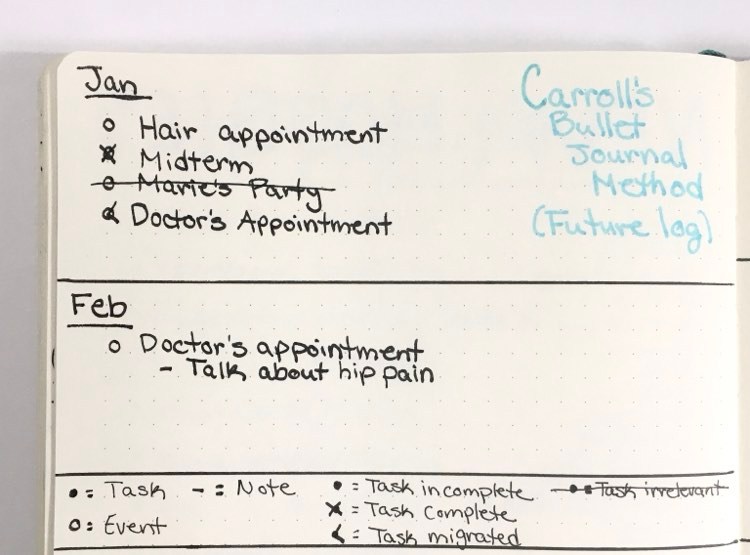 Jan
o Hair appointment
x Midterm
o Marie's Party
< Doctor's Appointment
Carroll's
Bullet
Journal
Method
(Future log)
Feb
o Doctor's appointment
- Talk about hip pain
• = Task - = Note • = Task incomplete • = Task irrelevant
o = Event x = Task Complete
< = Task migrated